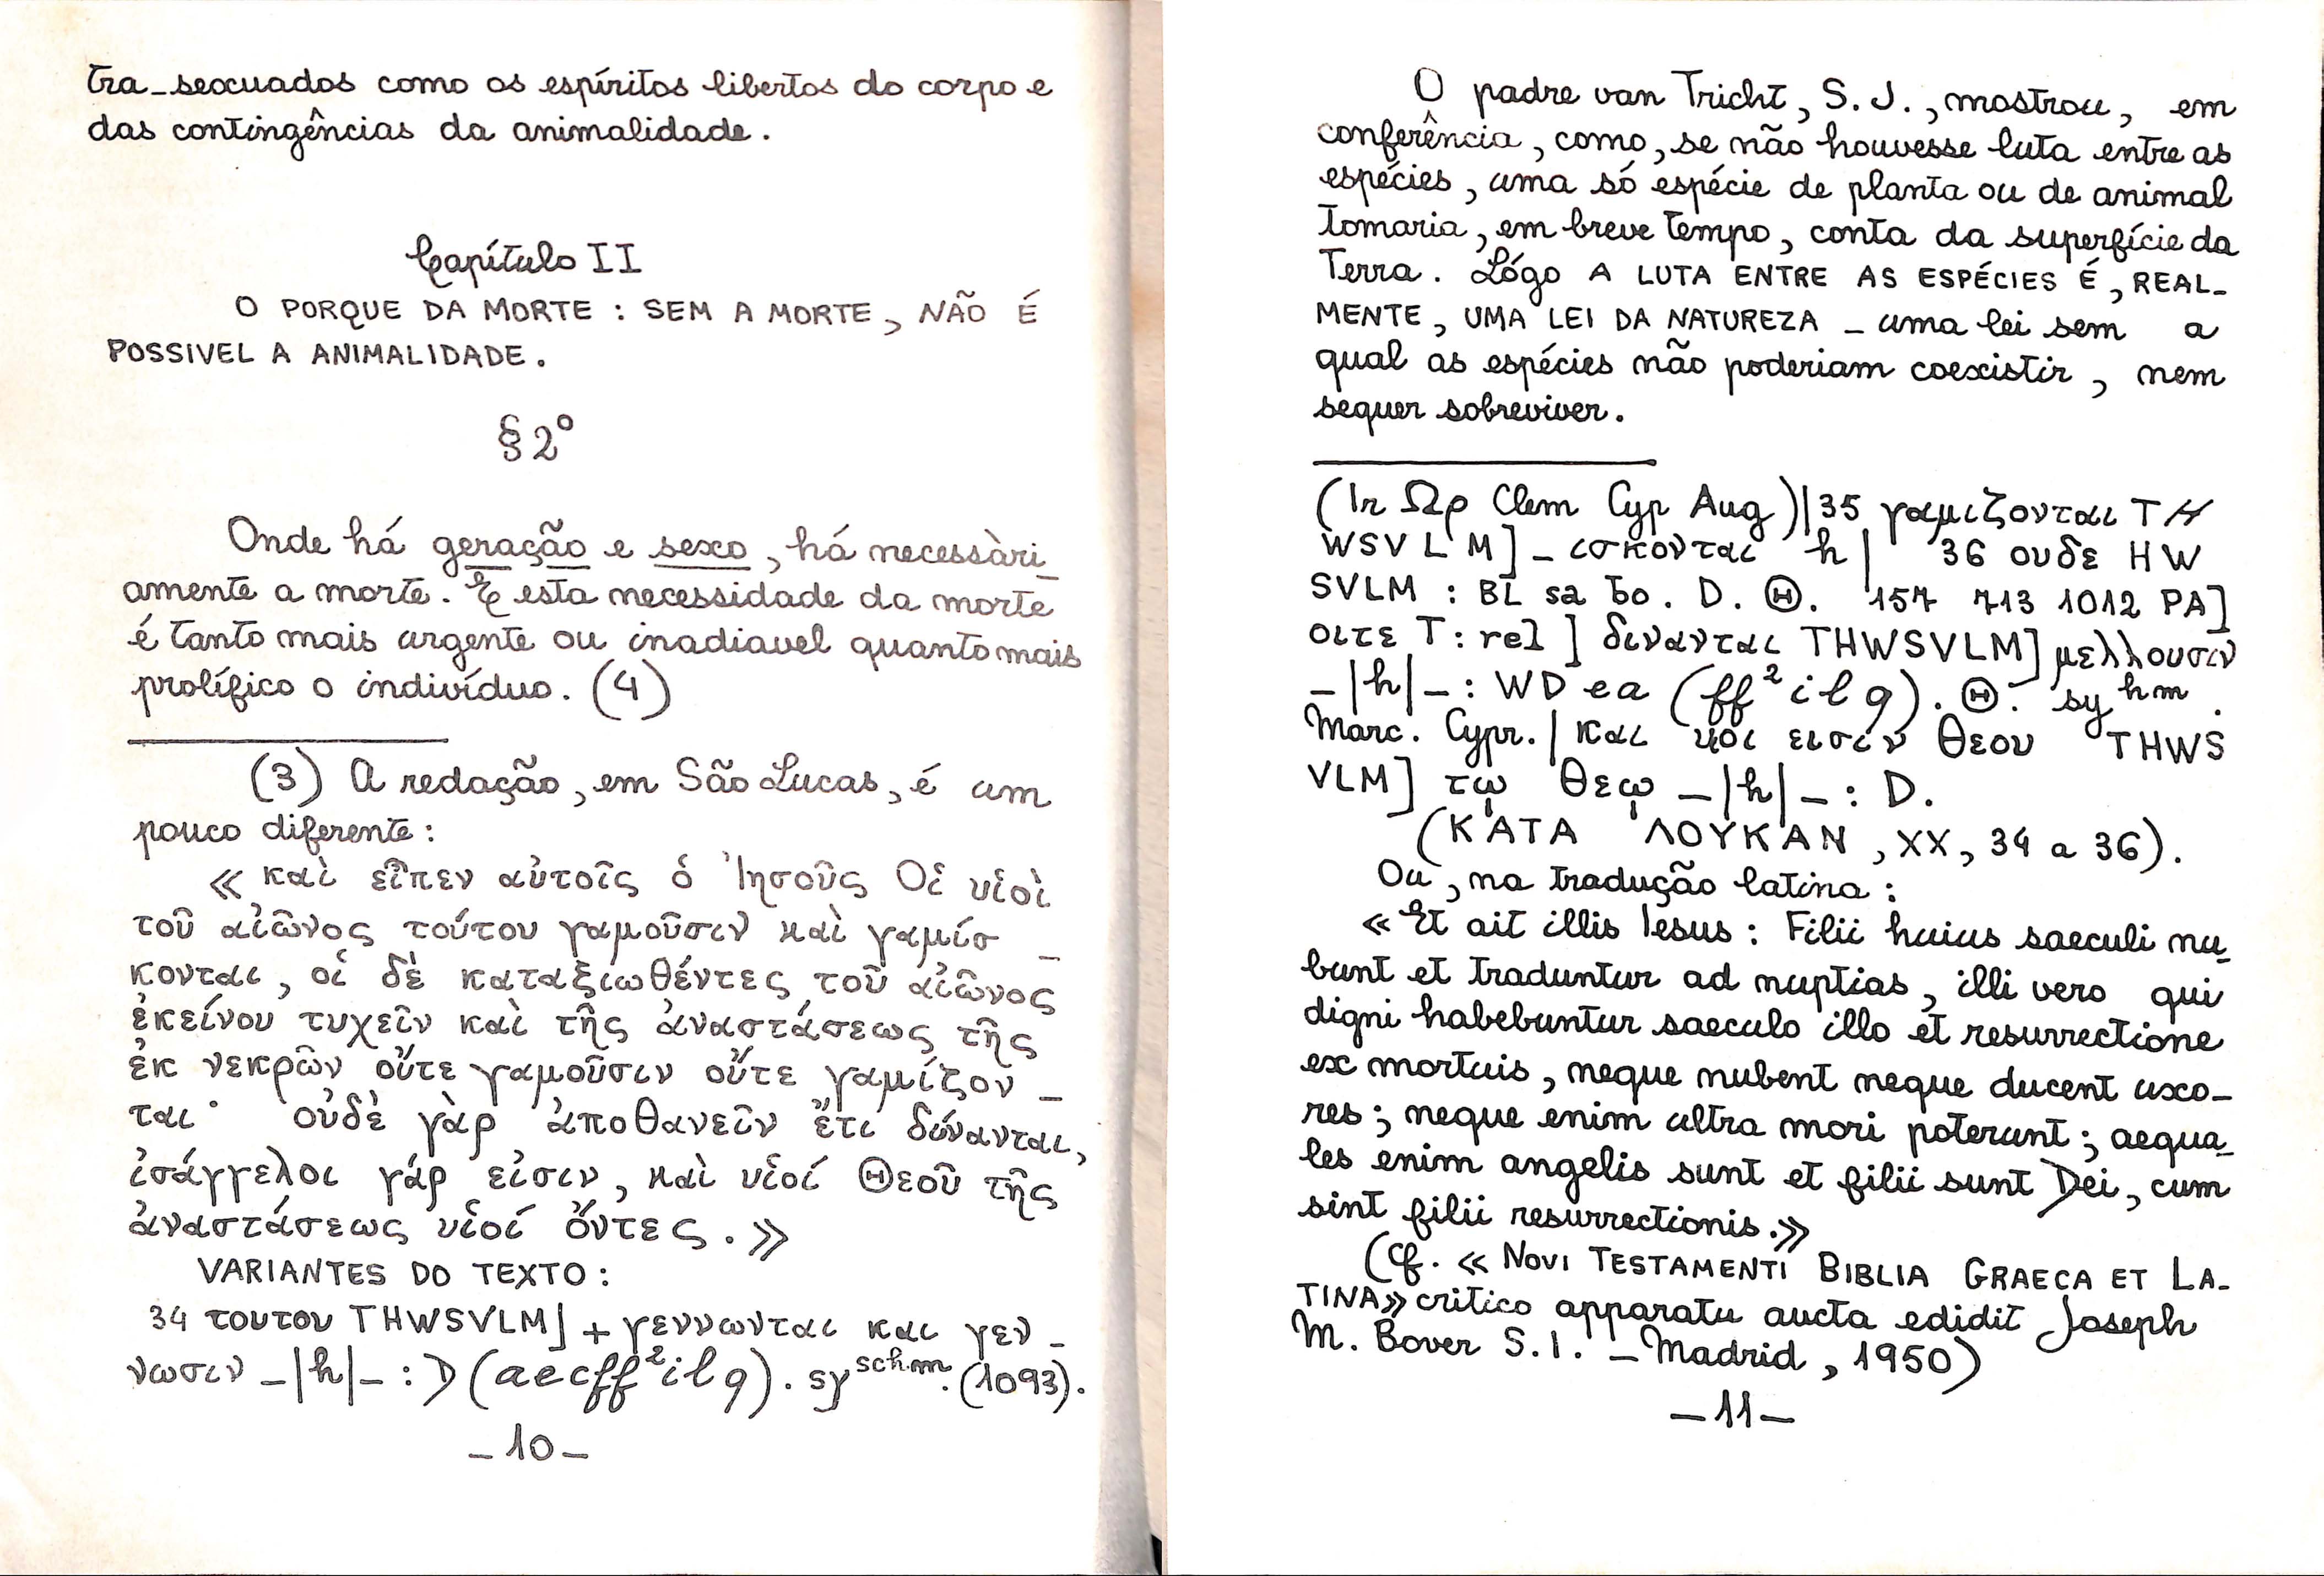 tra_sexuados como os espíritos libertos do corpo e
das contingências da animalidade.
Capítulo II
O PORQUE DA MORTE : SEM A MORTE, NÃO É
POSSIVEL A ANIMALIDADE.
§ 2º
Onde há geração e sexo, há necessàri_
amente a morte. E esta necessidade da morte
é tanto mais urgente ou inadiavel quanto mais
prolífico o indivíduo. (4)
(3) A redação, em São Lucas, é um
pouco diferente:
« καὶ εἶπεν αὐτοῖς ὁ Ἰησοῦς Οἱ υἱοὶ
τοῦ αἰῶνος τούτου γαμοῦσιν καὶ γαμίσ_
κονται, οἱ δὲ καταξιωθέντες τοῦ αἰῶνος
ἐκείνου τυχεῖν καὶ τῆς ἀναστάσεως τῆς
ἐκ νεκρῶν οὔτε γαμοῦσιν οὔτε γαμίζον_
ται· οὐδὲ γὰρ ἀποθανεῖν ἔτι δύνανται,
ἰσάγγελοι γάρ εἰσιν, καὶ υἱοί Θεοῦ τῆς
ἀναστάσεως υἱοί ὄντες.»
VARIANTES DO TEXTO:
34 τουτου THWSVLM] + γεννωνται και γεν_
νωσιν _|h|_ : D (aecff²ilq). sy sch.m. (1093).
_10_
O padre van Tricht, S. J., mostrou, em
conferência, como, se não houvesse luta entre as
espécies, uma só espécie de planta ou de animal
tomaria, em breve tempo, conta da superfície da
Terra. Lógo A LUTA ENTRE AS ESPÉCIES É, REAL_
MENTE, UMA LEI DA NATUREZA _ uma lei sem a
qual as espécies não poderiam coexistir, nem
sequer sobreviver.
(Ir Ωρ Clem Cyp Aug)|35 γαμιζονται TH
WSVLM] _ισκονται h| 36 ουδε HW
SVLM : BL sa bo. D. Θ. 157 713 1012 PA]
οιτε T: rel ] δινανται THWSVLM] μελλουσιν
_|h|_: WD ea (ff²ilq). Θ. sy hm.
Marc. Cypr.| και υοι εισιν θεου THWS
VLM] τῳ θεῳ _|h|_: D.
(ΚΑΤΑ ΛΟΥΚΑΝ, XX, 34 a 36).
Ou, na tradução latina:
« Et ait illis Iesus: Filii huius saeculi nu_
bunt et traduntur ad nuptias, illi vero qui
digni habebuntur saeculo illo et resurrectione
ex mortuis, neque nubent neque ducent uxo_
res; neque enim ultra mori poterunt; aequa_
les enim angelis sunt et filii sunt Dei, cum
sint filii resurrectionis.»
(Cf. « NOVI TESTAMENTI BIBLIA GRAECA ET LA_
TINA» critico apparatu aucta edidit Joseph
M. Bover S. I. _ Madrid, 1950)
_11_